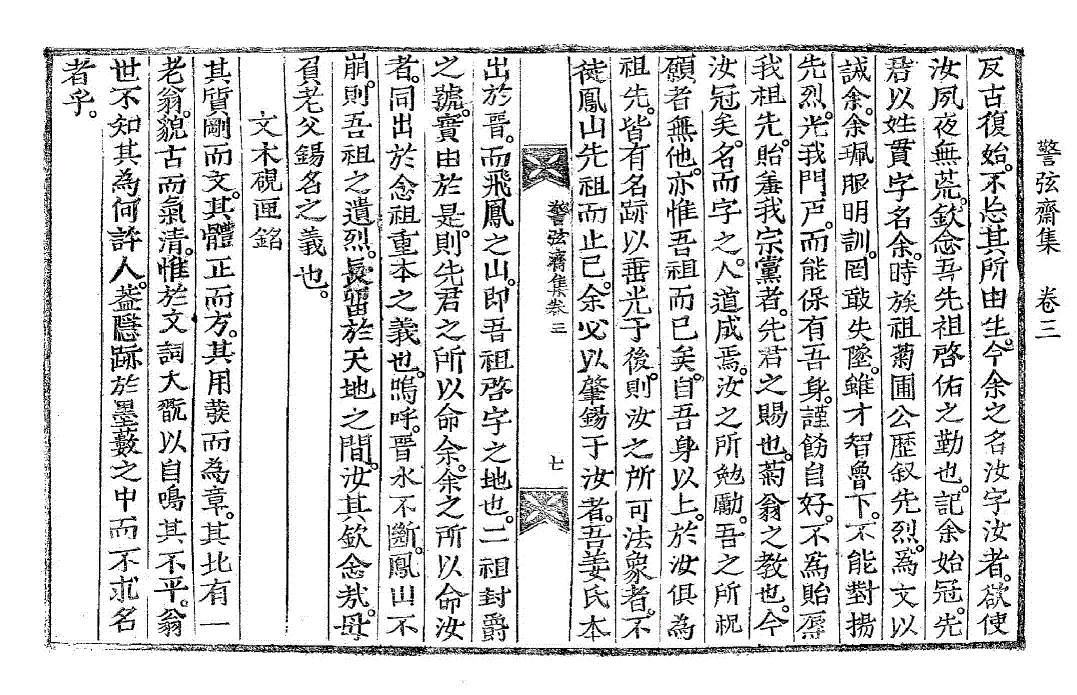 警弦齋集 卷三
反古復始。不忘其所由生。今余之名汝字汝者。欲使
汝夙夜無荒。欽念吾先祖啓佑之勤也。記余始冠。先
君以姓貫字名余。時族祖菊圃公歷叙先烈。爲文以
誡余。余珮服明訓。罔敢失墜。雖才智魯下。不能對揚
先烈。光我門戶。而能保有吾身。謹飭自好。不爲貽辱
我祖先。貽羞我宗黨者。先君之賜也。菊翁之敎也。今
汝冠矣。名而字之。人道成焉。汝之所勉勵。吾之所祝
願者無他。亦惟吾祖而已矣。自吾身以上。於汝俱爲
祖先。皆有名跡以垂光于後。則汝之所可法象者。不
徒鳳山先祖而止已。余必以肇錫于汝者。吾姜氏本
警弦齋集卷三 七
出於晉。而飛鳳之山。卽吾祖啓字之地也。二祖封爵
之號。實由於是。則先君之所以命余。余之所以命汝
者。同出於念祖重本之義也。嗚呼。晉水不斷。鳳山不
崩。則吾祖之遺烈。長留於天地之間。汝其欽念哉。毋
負老父錫名之義也。
文木硯匣銘
其質剛而文。其體正而方。其用蓑而為章。其北有一
老翁。貌古而氣清。惟於文詞大翫以自鳴其不平。翁
世不知其為何許人。盖隱跡於墨藪之中而不求名
者乎。